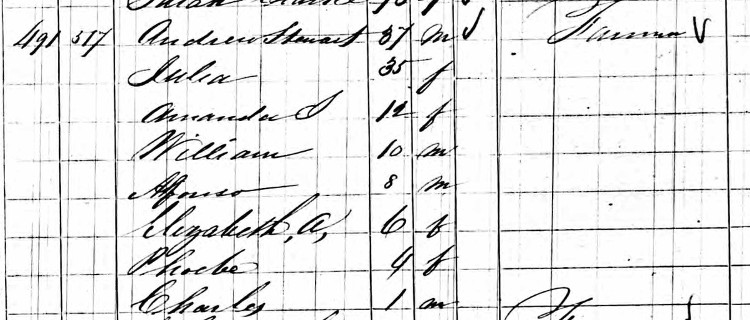 491 517 Andrew Stewart 37 m Farmer
Julia 35 f
Amanda S 12 f
William 10 m
Afonso 8 m
Elizabeth, A, 6 f
Phoebe 4 f
Charles 1 m